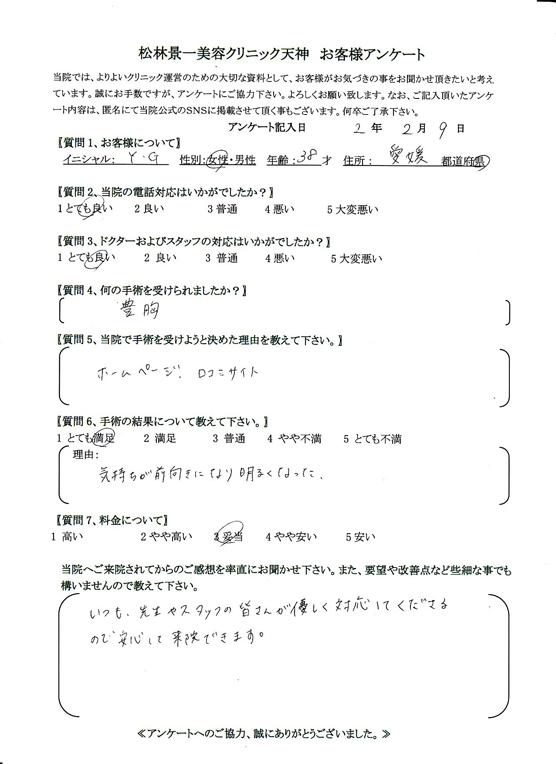 松林景一美容クリニック天神 お客様アンケート
当院では、よりよいクリニック運営のための大切な資料として、お客様がお気づきの事をお聞かせ頂きたいと考え
ています。誠にお手数ですが、アンケートにご協力下さい。よろしくお願い致します。なお、ご記入頂いたアンケ
ート内容は、匿名にて当院公式のSNSに掲載させて頂く事もございます。何卒ご了承下さい。
アンケート記入日 2 年 2 月 9 日
【質問1、お客様について】
イニシャル: Y・G 性別:女性・男性 年齢:38才 住所: 愛媛 都道府県
【質問2、当院の電話対応はいかがでしたか?】
1とても良い 2良い 3普通 4悪い 5大変悪い
【質問3、ドクターおよびスタッフの対応はいかがでしたか?】
1とても良い 2 良い 3 普通 4悪い 5大変悪い
【質問4、何の手術を受けられましたか?】
豊胸
【質問5、当院で手術を受けようと決めた理由を教えて下さい。】
ホームページ、口コミサイト
【質問6、手術の結果について教えて下さい。】
1とても満足 2 満足 3 普通 4 やや不満 5とても不満
理由:
気持ちが前向きになり明るくなった、
【質問7、料金について】
1 高い 2やや高い 3妥当 4やや安い 5安い
当院へご来院されてからのご感想を率直にお聞かせ下さい。また、要望や改善点など些細な事でも
構いませんので教えて下さい。
いつも、先生やスタッフの皆さんが優しく対応してくださる
ので安心して来院できます。
≪アンケートへのご協力、誠にありがとうございました。≫